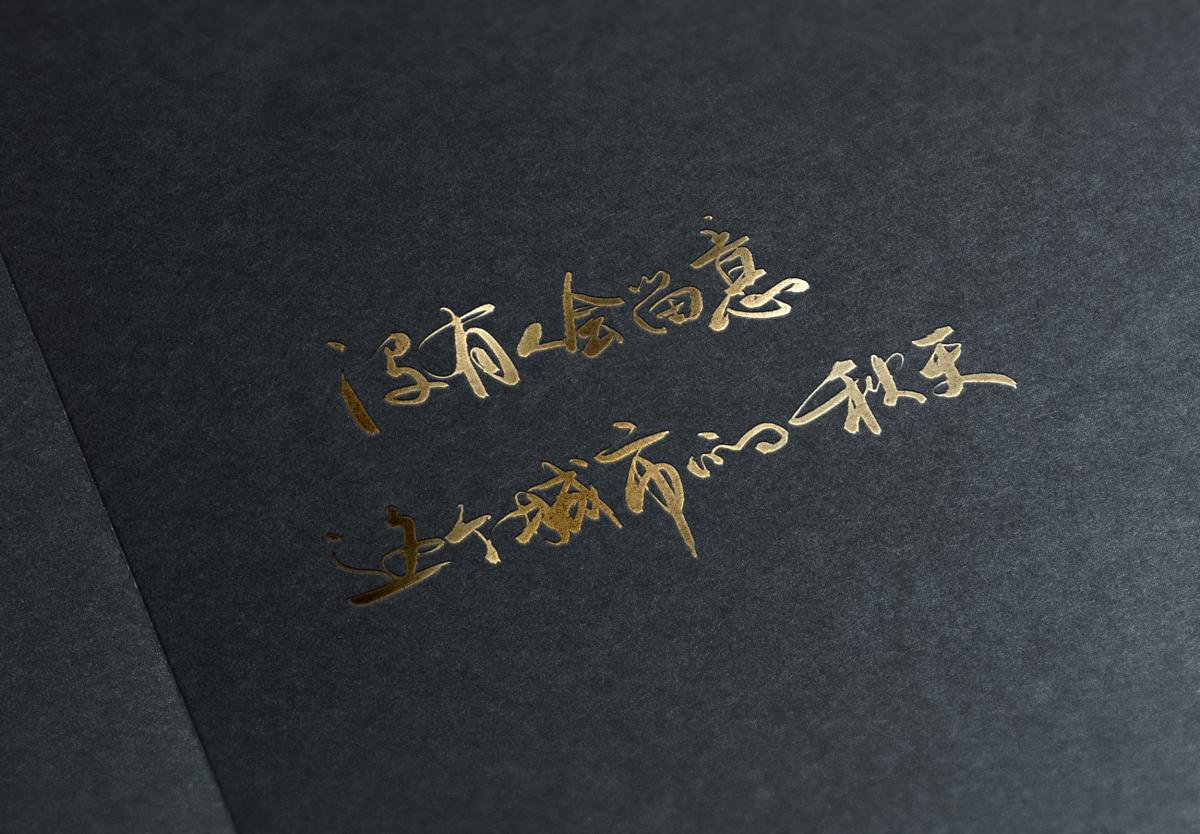 没有人会留意
这个城市的秋天